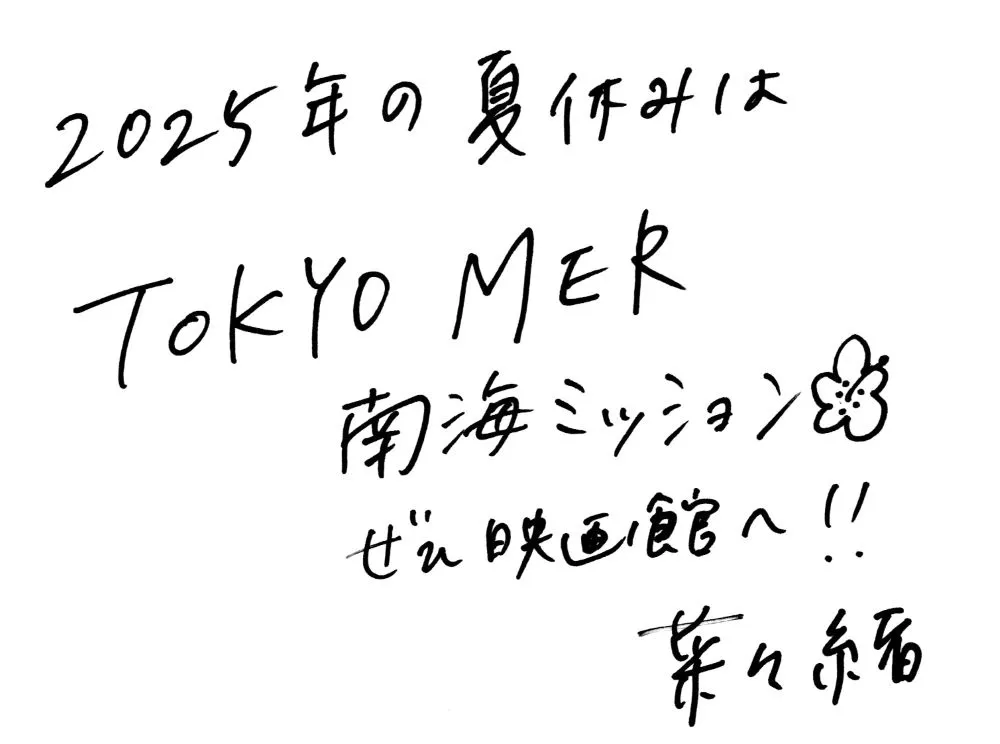 2025年の夏休みは
TOKYO MER
南海ミッション
ぜひ映画館へ!!
菜々緒